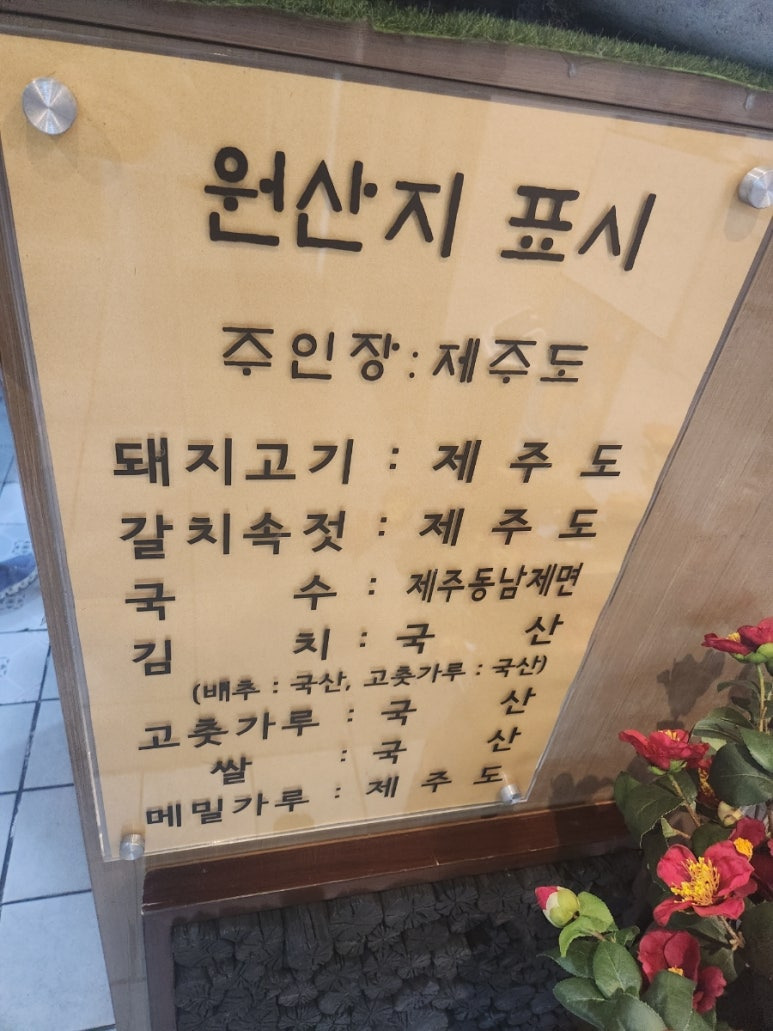 원산지 표시
주인장 : 제주도
돼지고기 : 제 주 도
갈치속젓 : 제 주 도
국 수 : 제주동남제면
김 치 : 국 산
(배추 : 국산, 고춧가루 : 국산)
고춧가루 : 국 산
쌀 : 국 산
메밀가루 : 제 주 도